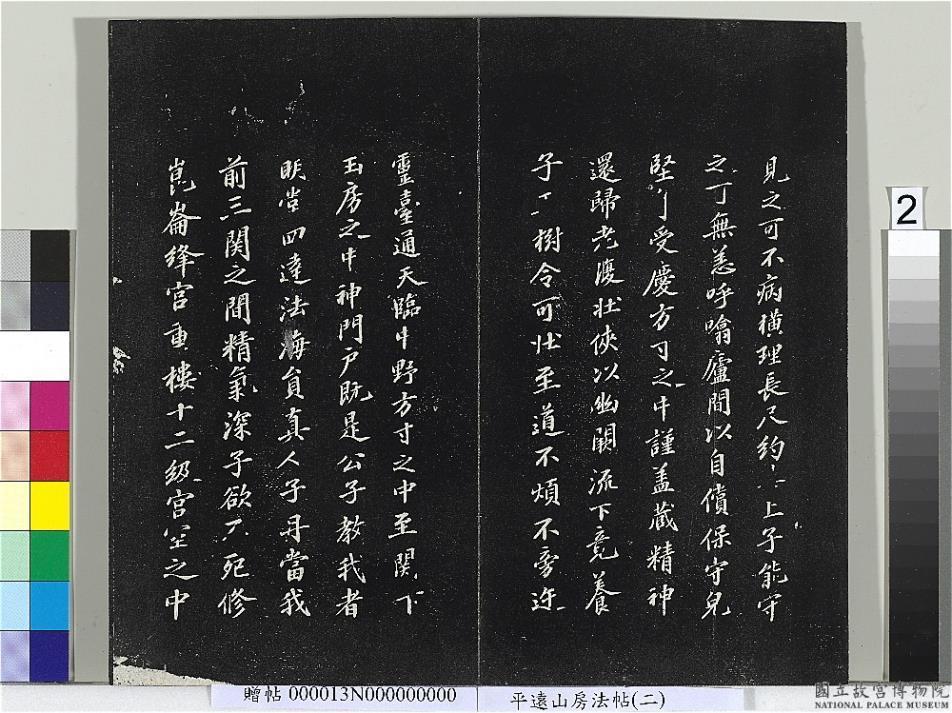 見之可不病橫理長尺約其上子能守
之可無恙呼噏廬間以自償保守皃
堅身受慶方寸之中謹盖蔵精神
還歸老復壯俠以幽闕流下竟養
子玉樹令可壯至道不煩不旁迕
靈臺通天臨中野方寸之中至関下
玉房之中神門户既是公子教我者
明堂四達法海負真人子丹當我
前三関之間精氣深子欲不死修
崑崙絳宫重樓十二級宫室之中
2
贈帖 000013N000000000
平遠山房法帖(二)
國立故宮博物院
NATIONAL PALACE MUSEUM